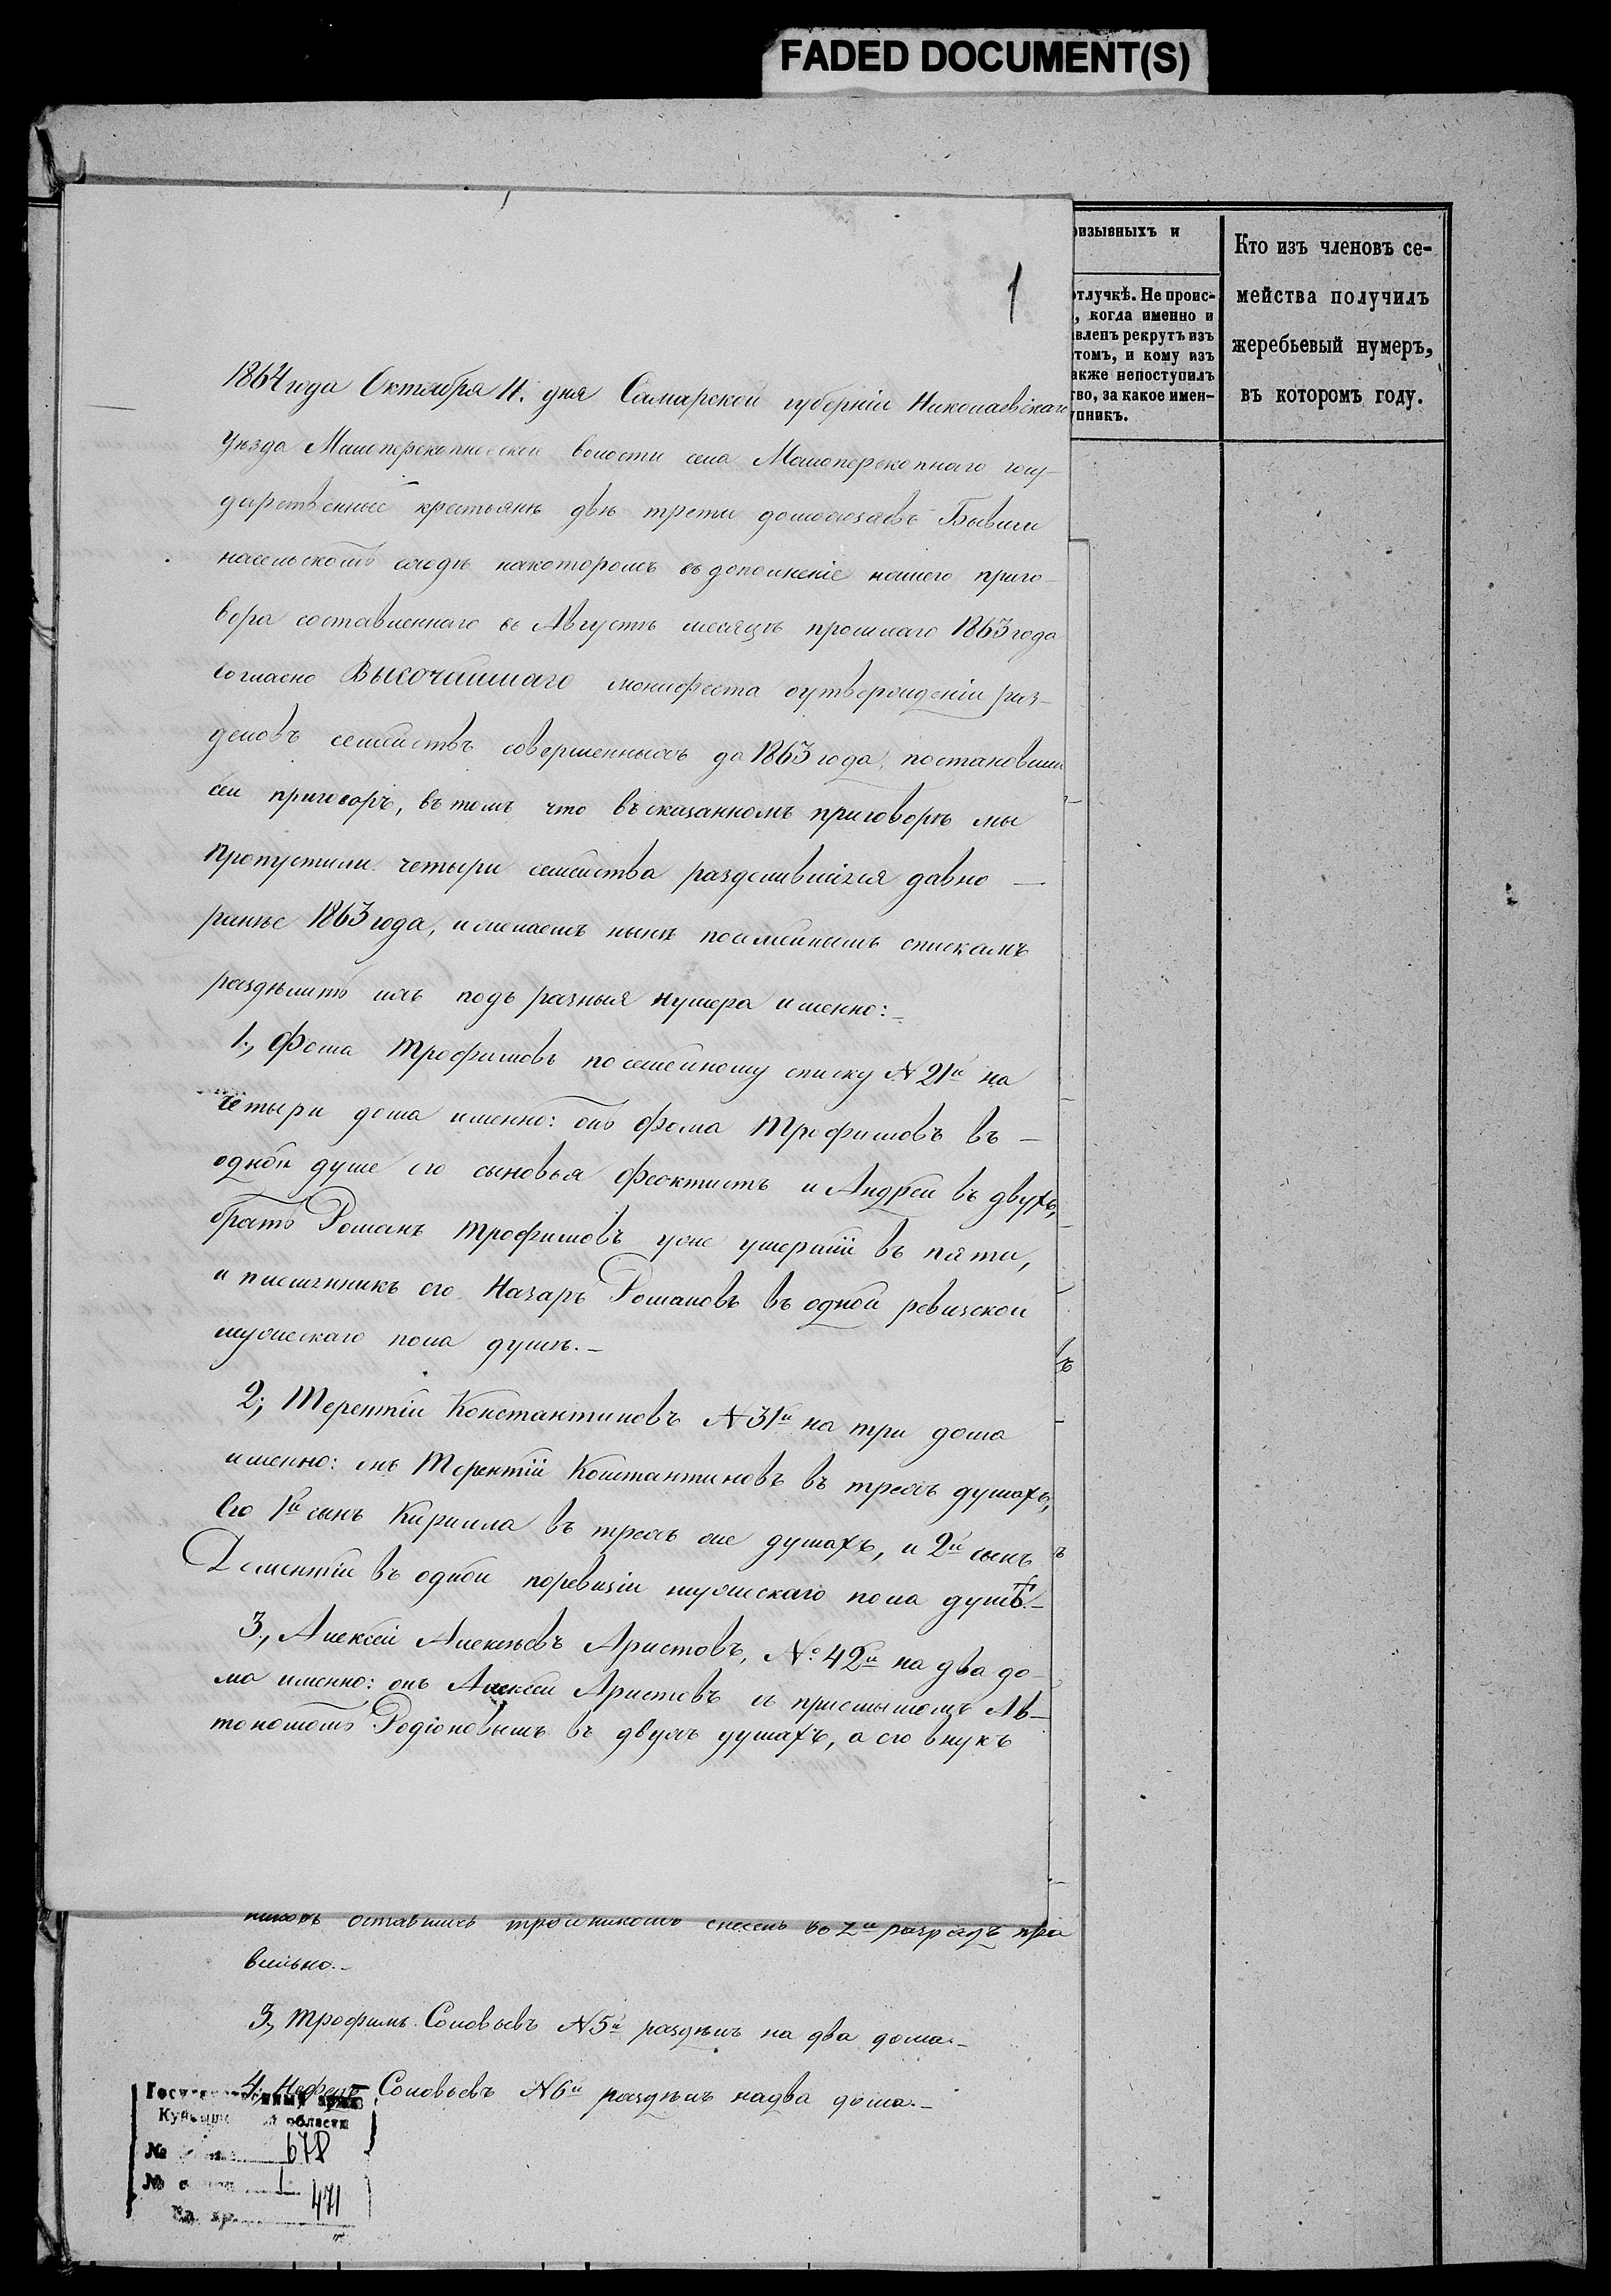 FADED DOCUMENT(S)
1
1864 года Октября 4. дня Самарской губерніи Николаевскаго
уѣзда Малоперекопновской волости села Малоперекопнаго госу-
дарственные крестьянѣ двѣ трети домохозяевъ Бывши
насельскомъ сходѣ накоторомъ въ дополненіе нашего приго-
вора составленнаго въ Августѣ месяцѣ прошлаго 1863 года
согласно Высочайшаго манифеста оутвержденіи раз-
деловъ семействъ совершенныхъ до 1863 года, постановили
сей приговоръ, въ томъ что въ сказанномъ приговорѣ мы
пропустили четыри семейства разделившихся давно —
ранѣе 1863 года, и желаемъ нынѣ посемейнымъ спискамъ
раздѣлить ихъ подъ разныя нумера именно:-
1., Фома Трофимовъ по семейному списку № 21й на
четыри дома именно: онъ Фома Трофимовъ въ —
одной душе его сыновья Феоктистъ и Андрей въ двухъ,
братъ Романъ Трофимовъ уже умершій въ пяти,
и племянникъ его Назаръ Романовъ въ одной ревизской
мужескаго пола душѣ.-
2; Терентій Константиновъ № 31й на три дома
именно: онъ Терентій Константиновъ въ трехъ душахъ,
Его 1й сынъ Кирилла въ трехъ же душахъ, и 2й сынъ
Дементій въ одной поревизіи мужескаго пола душѣ.-
3., Алексей Алексѣевъ Аристовъ, № 42й на два до-
ма именно: онъ Алексей Аристовъ съ приемышомъ Ав-
тономомъ Родіоновымъ въ двухъ душахъ, а его внукъ
оставшись тройникомъ снесенъ во 2й разрядъ пра
вильно.-
3., Трофимъ Соловьевъ № 5й раздѣлъ на два дома.-
4., Соловьевъ № 6й раздѣлъ надва дома.-
области
№ 678
№ 1
471
ризывныхъ и
отлучкѣ. Не проис-
, когда именно и
авленъ рекрутъ изъ
томъ, и кому изъ
акже непоступилъ
тво, за какое имен-
упникъ.
Кто изъ членовъ се-
мейства получилъ
жеребьевый нумеръ,
въ которомъ году.